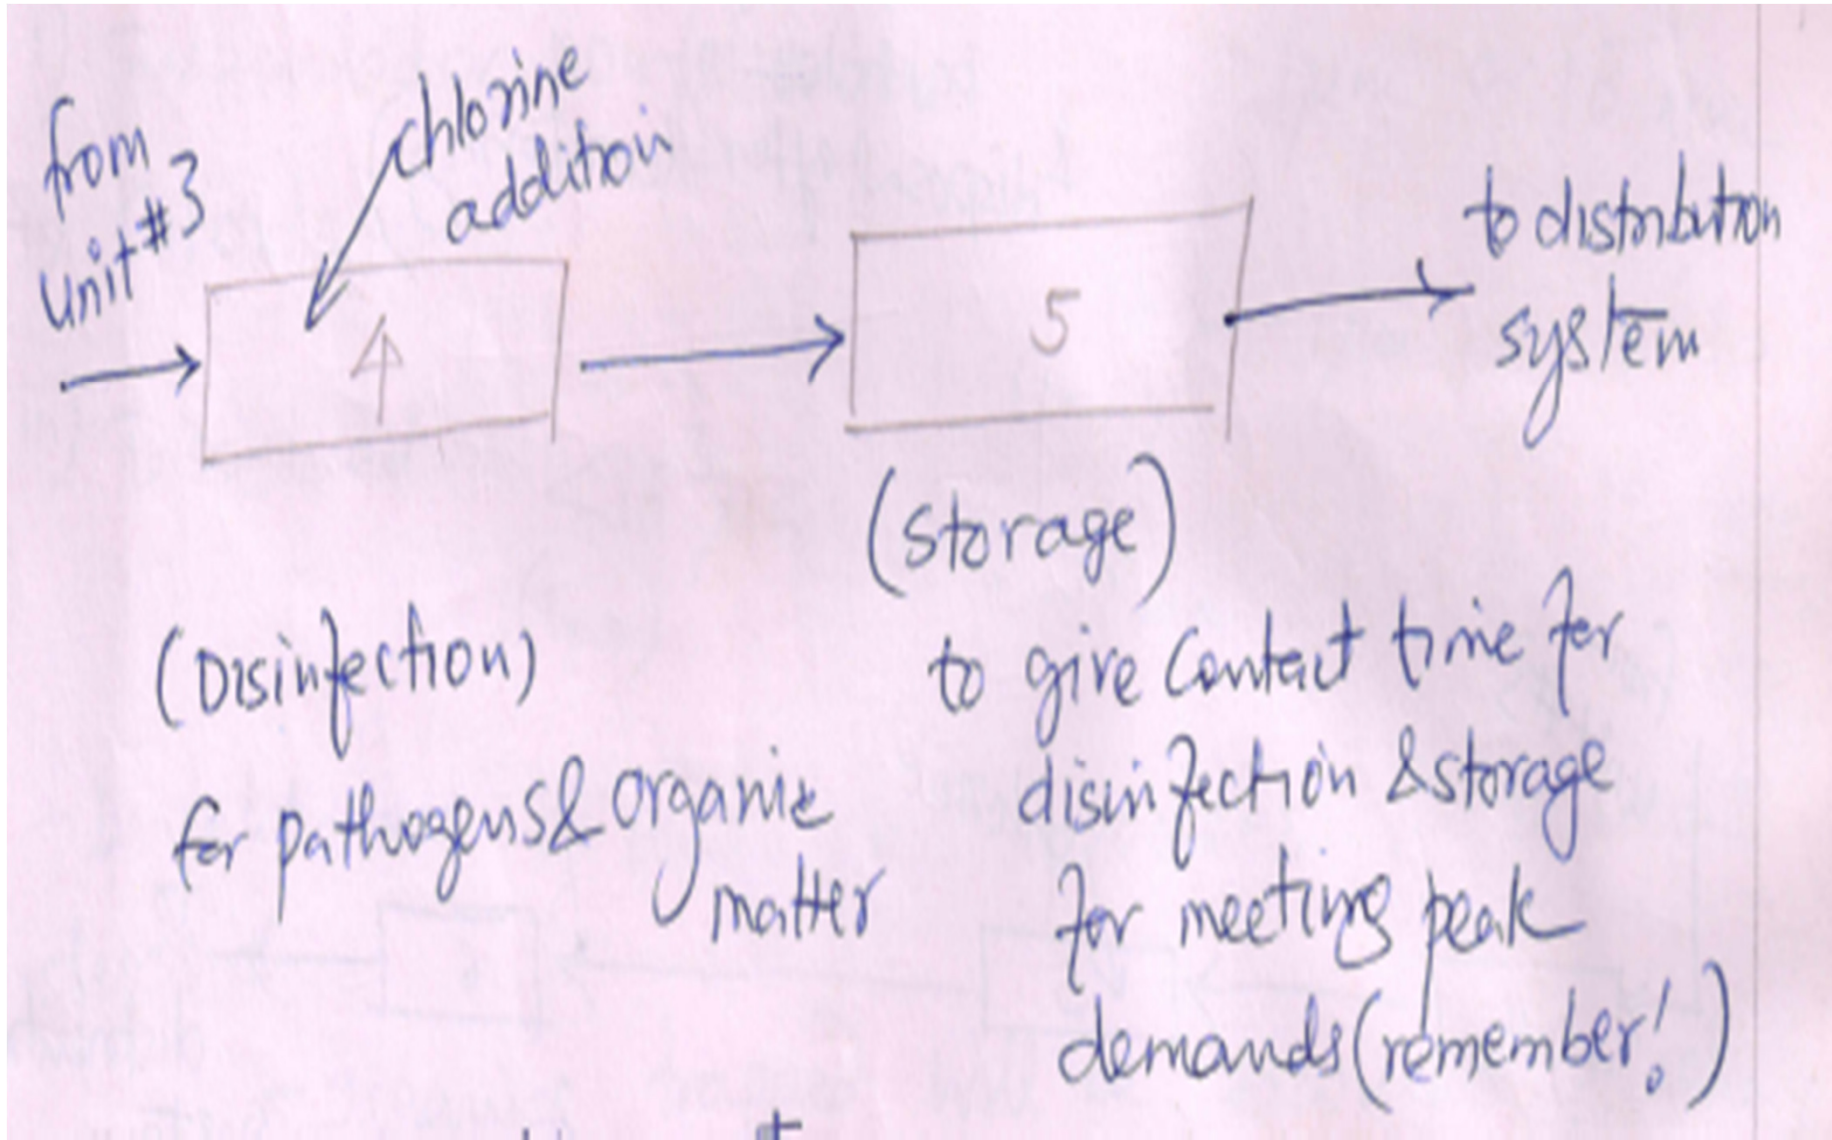 from
unit #3
chlorine
addition
4
5
to distribution
system
(storage)
(Disinfection)
for pathogens & organic
matter
to give contact time for
disinfection & storage
for meeting peak
demands (remember!)